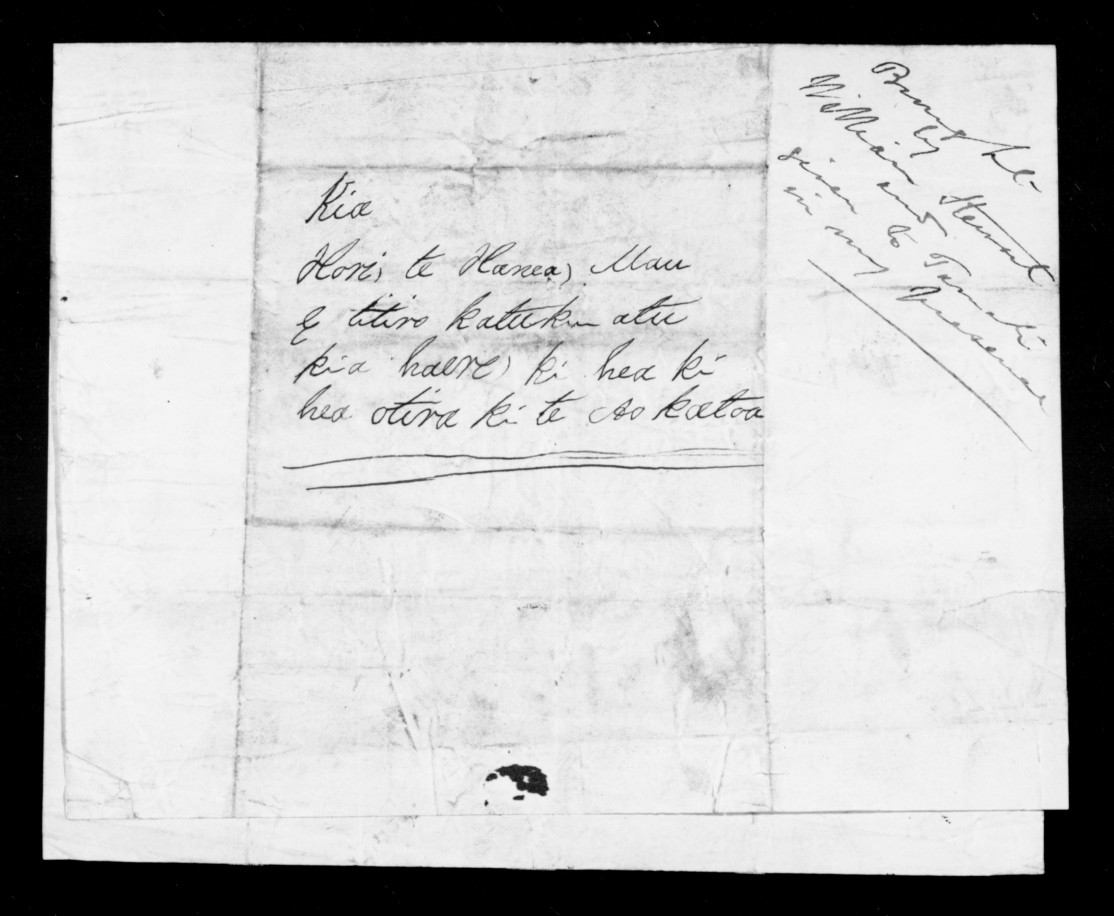 Kia
Hori, te Hanea, Mau
E titiro katuku atu
kia haere, ki hea ki
hea otira ki te Ao katoa
Brought
by
William Stewart
and
given to Tamati
in my presence